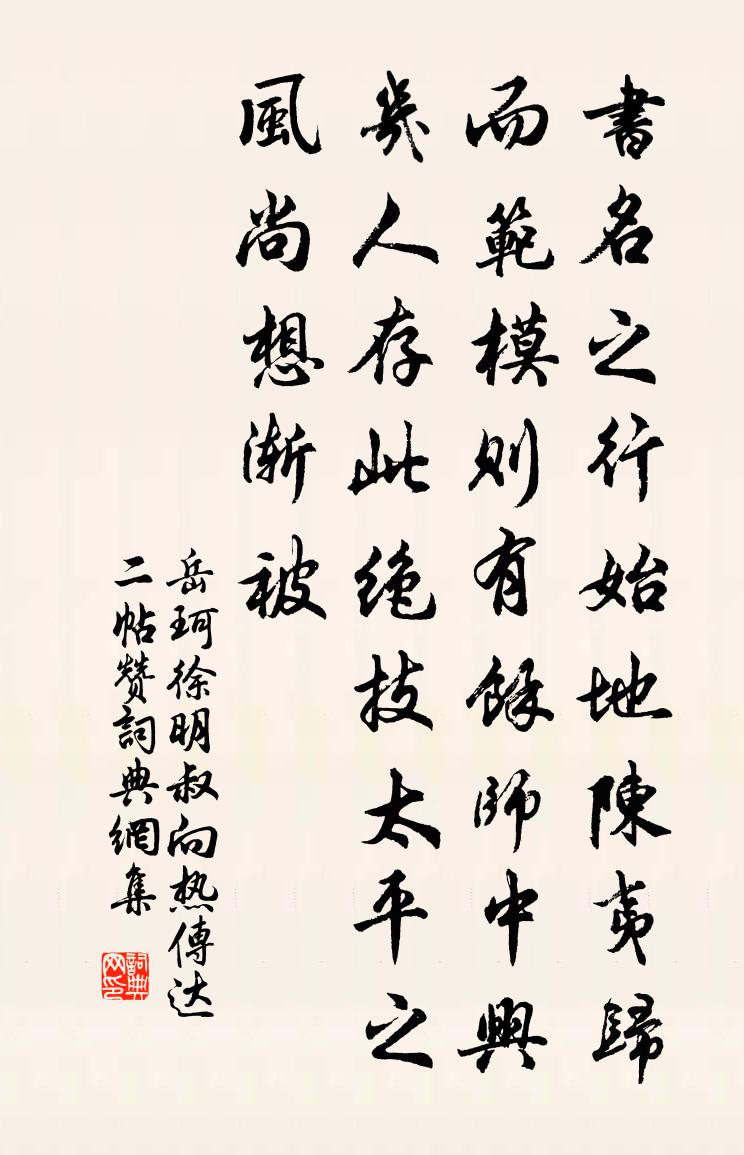 書名之行始地陳夷歸
而範模則有餘師中興
幾人存此绝技太平之
風尚想漸被
岳珂徐明叔向热傳达
二帖赞詞典網集
詞典
网印